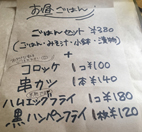 お昼ごはん
ごはんセット ¥380
(ごはん・みそ汁・小鉢・漬物)
+
コロッケ 1コ ¥100
串カツ 1本 ¥140
ハムエッグフライ 1コ ¥180
黒ハンペンフライ 1枚 ¥120